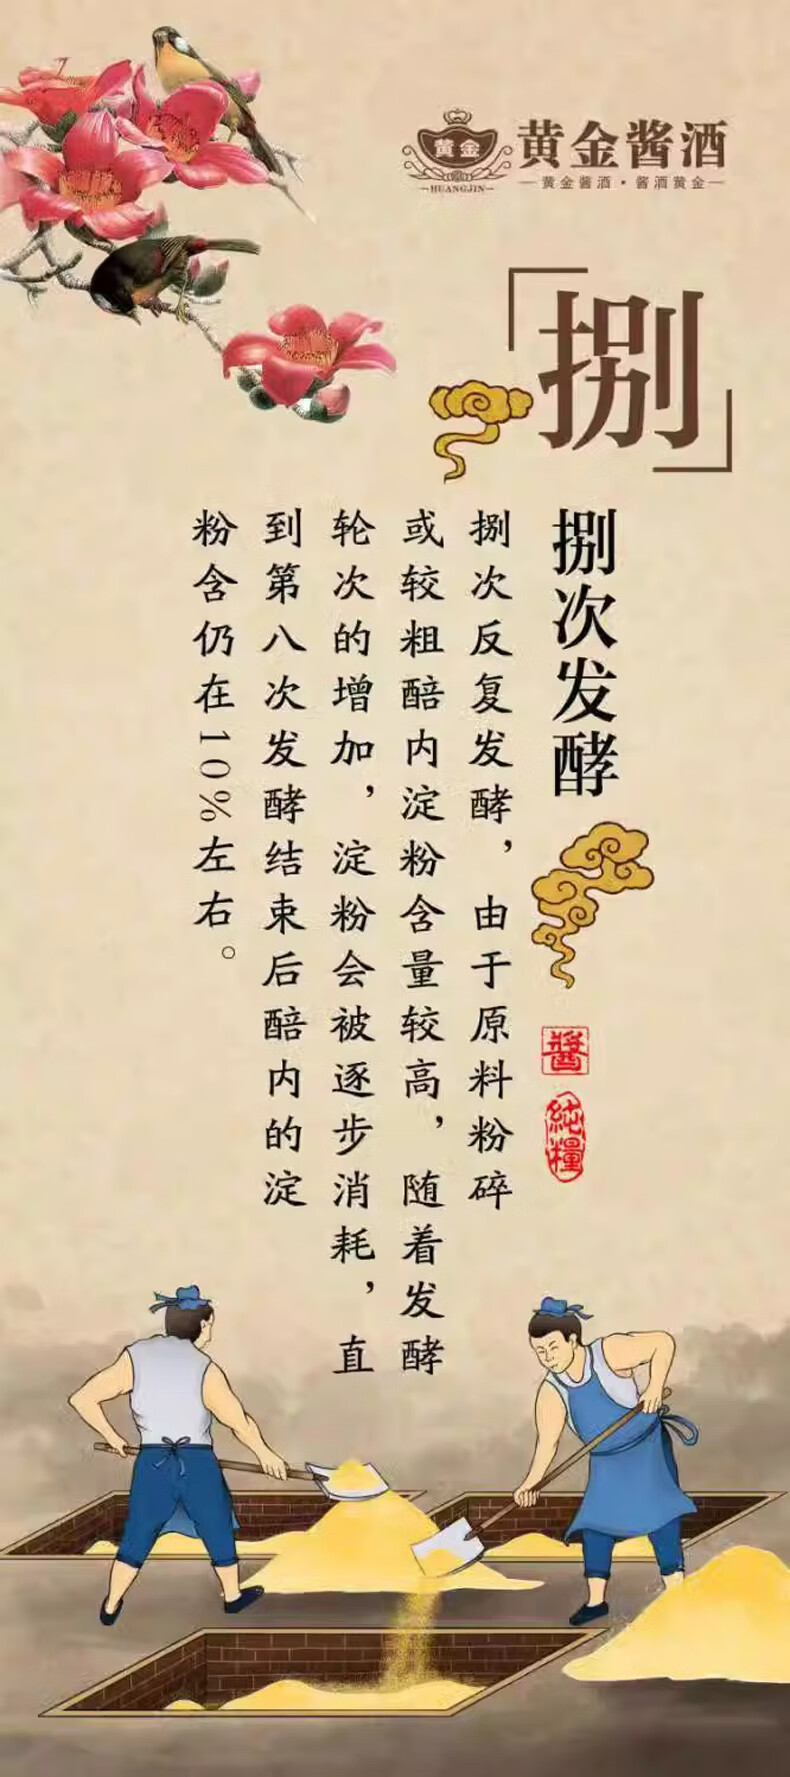 黄金
HUANGJIN
黄金酱酒
黄金酱酒·酱酒黄金
「捌」
捌次发酵
捌次反复发酵，由于原料粉碎
或较粗醅内淀粉含量较高，随着发酵
轮次的增加，淀粉会被逐步消耗，直
到第八次发酵结束后醅内的淀
粉含仍在10%左右。
醬
純糧